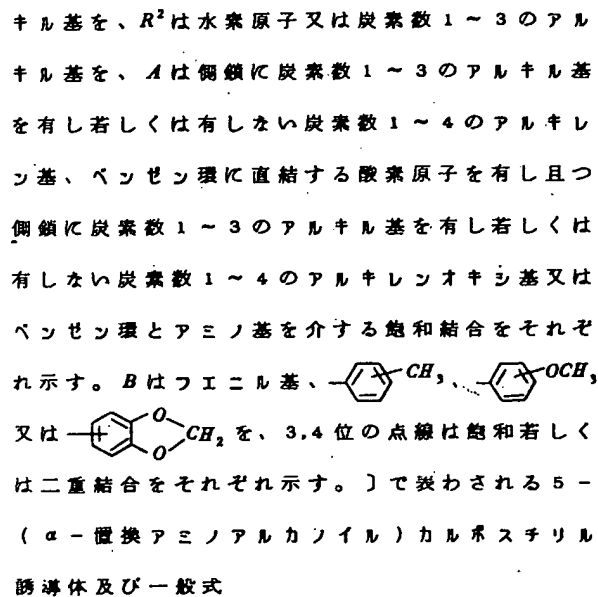 キル基を、R²は水素原子又は炭素数1～3のアル
キル基を、Aは側鎖に炭素数1～3のアルキル基
を有し若しくは有しない炭素数1～4のアルキレ
ン基、ベンゼン環に直結する酸素原子を有し且つ
側鎖に炭素数1～3のアルキル基を有し若しくは
有しない炭素数1～4のアルキレンオキシ基又は
ベンゼン環とアミノ基を介する飽和結合をそれぞ
れ示す。Bはフエニル基、CH₃、OCH₃
又はO O CH₂を、3,4位の点線は飽和若しく
は二重結合をそれぞれ示す。〕で表わされる5-
(α-置換アミノアルカノイル)カルボスチリル
誘導体及び一般式